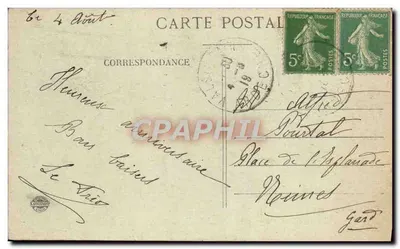 Ce 4 Août.
CARTE POSTALE
CORRESPONDANCE
Heureux anniversaire
Bons baisers
Le Trio
REPUBLIQUE FRANÇAISE
5c
POSTES
REPUBLIQUE FRANÇAISE
5c
POSTES
CPAPHIL.com
Alfred
Pourtal
Place de l'Esplanade
Nimes
Gard